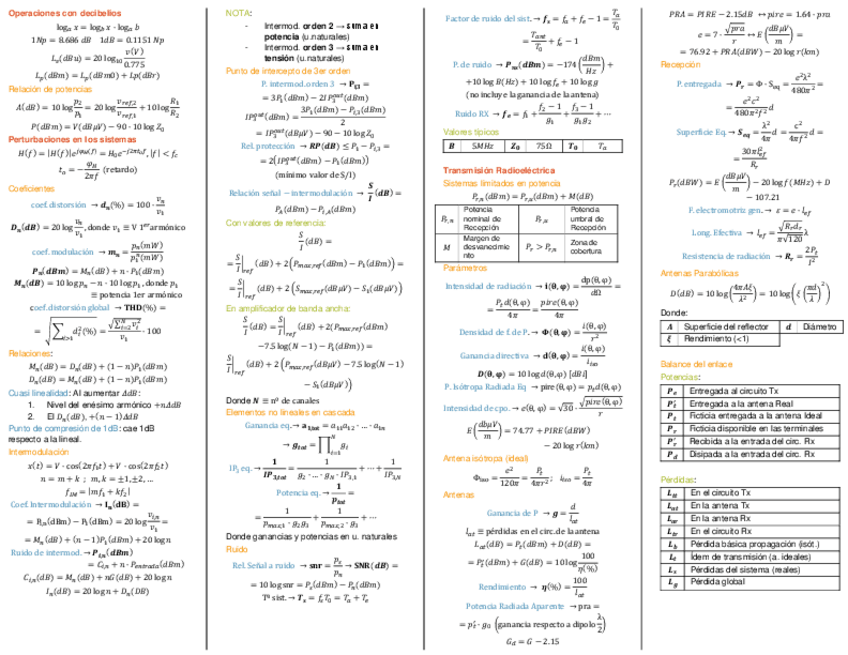 Operaciones con decibelios
log_n x = log_b x · log_n b
1Np = 8.686 dB   1dB = 0.1151 Np
L_p(dBu) = 20 log_10 v(V)/0.775
L_p(dBm) = L_p(dBm0) + Lp(dBr)
Relación de potencias
A(dB) = 10 log p_2/p_1 = 20 log v_ref,2/v_ref,1 + 10 log R_1/R_2
P(dBm) = V(dBμV) − 90 − 10 log Z_0
Perturbaciones en los sistemas
H(f) = |H(f)|e^jφω(f) = H_0e^−j2πt_0f, |f| < f_c
t_a = −φ_H/2πf (retardo)
Coeficientes
coef.distorsión → d_n(%) = 100 · v_n/v_1
D_n(dB) = 20 log v_n/v_1, donde v_1 ≡ V 1er armónico
coef.modulación → m_n = p_n(mW)/p_1^n(mW)
P_n(dBm) = M_n(dB) + n · P_1(dBm)
M_n(dB) = 10 log p_n − n · 10 log p_1, donde p_1
≡ potencia 1er armónico
coef.distorsión global → THD(%) =
= √∑_i>1 d_i^2(%) = √∑_i=2^N v_i^2/v_1 · 100
Relaciones:
M_n(dB) = D_n(dB) + (1 − n)P_1(dBm)
D_n(dB) = M_n(dB) + (1 − n)P_1(dBm)
Cuasi linealidad: Al aumentar ΔdB:
1. Nivel del enésimo armónico +nΔdB
2. El D_n(dB), +(n − 1)ΔdB
Punto de compresión de 1dB: cae 1dB
respecto a la lineal.
Intermodulación
x(t) = V · cos(2πf_1t) + V · cos(2πf_2t)
n = m + k ; m, k = ±1, ±2, …
f_IM = |mf_1 + kf_2|
Coef.Intermodulación → I_n(dB) =
= P_i,n(dBm) − P_1(dBm) = 20 log v_i,n/v_1 =
= M_n(dB) + (n − 1)P_1(dBm) + 20 log n
Ruido de intermod. → P_i,n(dBm)
= C_i,n + n · P_entrada(dBm)
C_i,n(dB) = M_n(dB) + nG(dB) + 20 log n
I_n(dB) = 20 log n + D_n(DB)
NOTA:
- Intermod. orden 2 → suma en
potencia (u.naturales)
- Intermod. orden 3 → suma en
tensión (u.naturales)
Punto de intercepto de 3er orden
P. intermod.orden 3 → P_i,3 =
= 3P_1(dBm) − 2IP_3^out(dBm)
IP_3^out(dBm) = 3P_1(dBm) − P_i,3(dBm)/2
= IP_3^out(dBμV) − 90 − 10 log Z_0
Rel.protección → RP(dB) ≤ P_1 − P_i,3 =
= 2(IP_3^out(dBm) − P_1(dBm))
(mínimo valor de S/I)
Relación señal − intermodulación → S/I(dB) =
P_A(dBm) − P_i,A(dBm)
Con valores de referencia:
S/I(dB) =
= S/I|_ref(dB) + 2(P_max,ref(dBm) − P_1(dBm)) =
= S/I|_ref(dB) + 2(S_max,ref(dBμV) − S_1(dBμV))
En amplificador de banda ancha:
S/I(dB) = S/I|_ref(dB) + 2(P_max,ref(dBm)
−7.5 log(N − 1) − P_1(dBm)) =
S/I|_ref(dB) + 2(P_max,ref(dBμV) − 7.5 log(N − 1)
− S_1(dBμV))
Donde N ≡ nº de canales
Elementos no lineales en cascada
→ g_tot = ∏_i=1^n g_i
IP_3 eq. → 1/IP_3,tot = 1/g_2 · … · g_N · IP_3,1 + ⋯ + 1/IP_3,N
Potencia eq. → 1/p_tot =
= 1/p_max,1 · g_2g_3 + 1/p_max,2 · g_3 + ⋯
Donde ganancias y potencias en u. naturales
Ruido
Rel.Señal a ruido → snr = p_s/p_n → SNR(dB) =
= 10 log snr = P_s(dBm) − P_n(dBm)
Tª sist. → T_s = f_eT_0 = T_a + T_e
Factor de ruido del sist. → f_s = f_a + f_e − 1 = T_s/T_0
= T_ant/T_0 + f_e − 1
P.de ruido → P_n(dBm) = −174(dBm/Hz) +
+10 log B(Hz) + 10 log f_s + 10 log g
(no incluye la ganancia de la antena)
Ruido RX → f_e = f_1 + f_2 − 1/g_1 + f_3 − 1/g_1g_2 + ⋯
Valores típicos
B 5MHz Z_0 75Ω T_0 T_a
Transmisión Radioeléctrica
Sistemas limitados en potencia
P_r,n(dBm) = P_r,u(dBm) + M(dB)
P_r,n Potencia nominal de Recepción P_r,u Potencia umbral de Recepción
M Margen de desvanecimiento P_r > P_r,u Zona de cobertura
Parámetros
Intensidad de radiación → i(θ,φ) = dp(θ,φ)/dΩ =
= P_t d(θ,φ)/4π = pire(θ,φ)/4π
Densidad de f.de P. → Φ(θ,φ) = i(θ,φ)/r^2
Ganancia directiva → d(θ,φ) = i(θ,φ)/i_iso
D(θ,φ) = 10 log d(θ,φ) [dBi]
P. Isótropa Radiada Eq → pire(θ,φ) = p_t d(θ,φ)
Intensidad de cpo. → e(θ,φ) = √30 · √pire(θ,φ)/r
E(dBμV/m) = 74.77 + PIRE(dBW)
− 20 log r(km)
Antena isótropa (ideal)
Φ_iso = e^2/120π = P_t/4πr^2; i_iso = P_t/4π
Antenas
Ganancia de P → g = d/l_at
l_at ≡ pérdidas en el circ.de la antena
L_at(dB) = P_t(dBm) + D(dB) =
= P_t'(dBm) + G(dB) = 10 log 100/η(%)
Rendimiento → η(%) = 100/l_at
Potencia Radiada Aparente → pra =
= p_t' · g_0 (ganancia respecto a dipolo λ/2)
G_d = G − 2.15
PRA = PIRE − 2.15dB ↔ pire = 1.64 · pra
e = 7 · √pra/r ↔ E(dBμV/m) =
= 76.92 + PRA(dBW) − 20 log r(km)
Recepción
P.entregada → P_r = Φ · S_eq = e^2λ^2/480π^2 =
= e^2c^2/480π^2f^2
Superficie Eq. → S_eq = λ^2/4π d = c^2/4πf^2 d =
= 30πl_ef^2/R_r
P_r(dBW) = E(dBμV/m) − 20 log f(MHz) + D
− 107.21
F.electromotriz gen. → ε = e · l_ef
Long.Efectiva → l_ef = √R_rd_r/π√120 λ
Resistencia de radiación → R_r = 2P_t/I^2
Antenas Parabólicas
D(dB) = 10 log(4πAξ/λ^2) = 10 log(ξ(πd/λ)^2)
Donde:
A Superficie del reflector d Diámetro
ξ Rendimiento (<1)
Balance del enlace
Potencias:
P_e Entregada al circuito Tx
P_t' Entregada a la antena Real
P_t Ficticia entregada a la antena Ideal
P_r Ficticia disponible en las terminales
P_r' Recibida a la entrada del circ. Rx
P_d Disipada a la entrada del circ. Rx
Pérdidas:
L_tt En el circuito Tx
L_at En la antena Tx
L_ar En la antena Rx
L_tr En el circuito Rx
L_b Pérdida básica propagación (isót.)
L_t Ídem de transmisión (a. ideales)
L_s Pérdidas del sistema (reales)
L_g Pérdida global